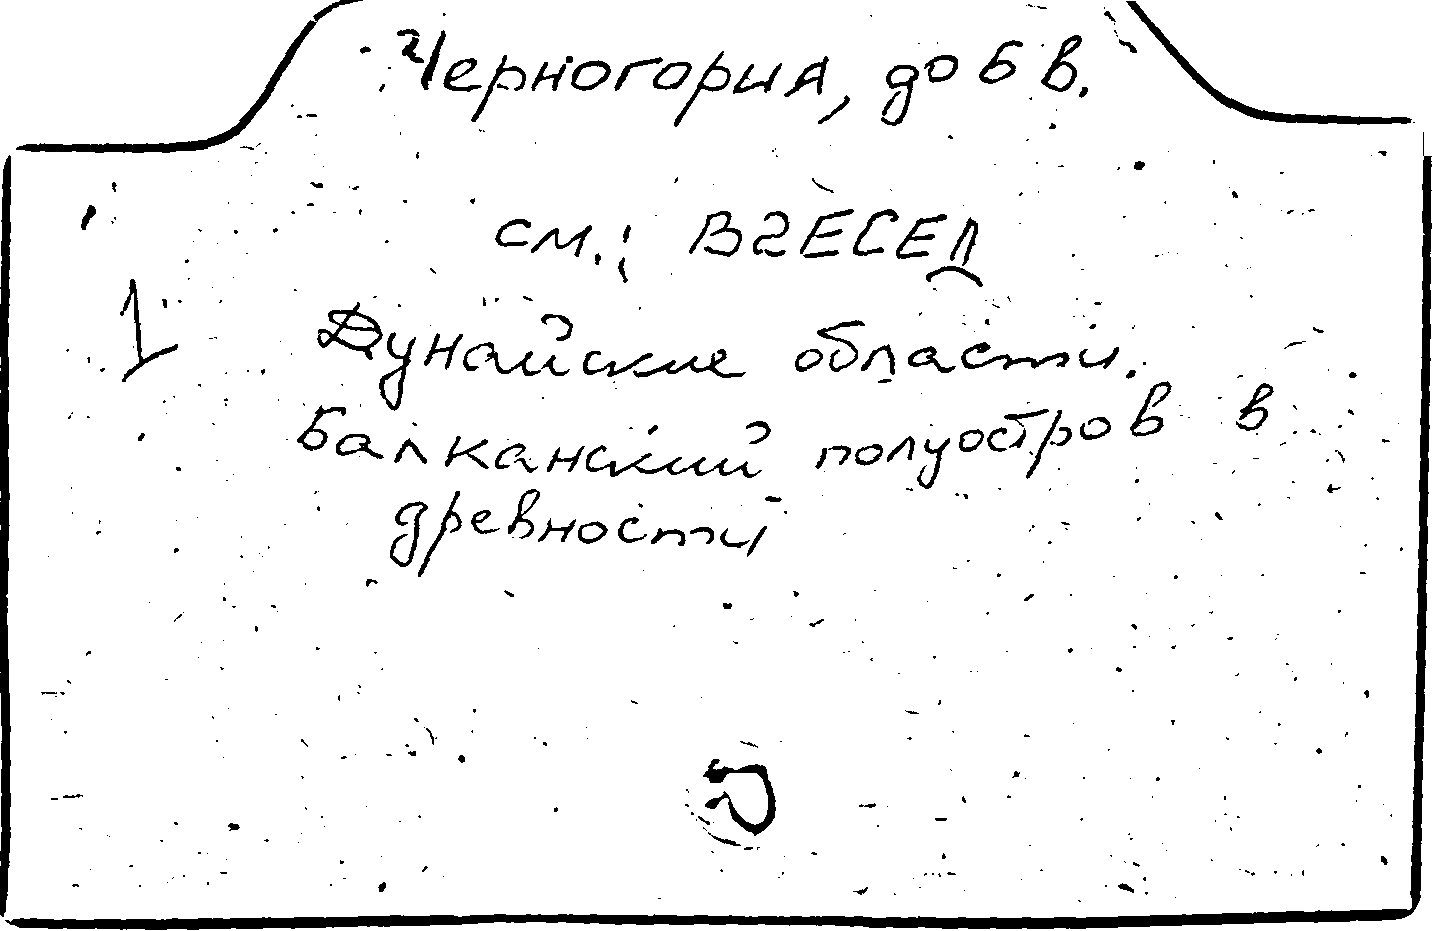 Черногория, до 6 в.
см.: В2ЕСЕЛ
1 Дунайские области.
Балканский полуостров в
древности